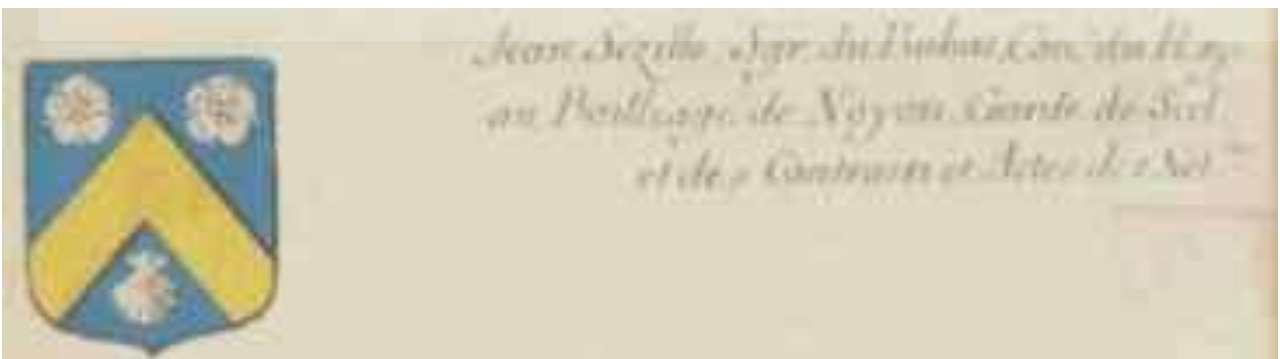 Jean Sezille Sgr. du Con.er du Roy
au Bailliage de Noyon Garde de Scel
et des Contracts et Actes des